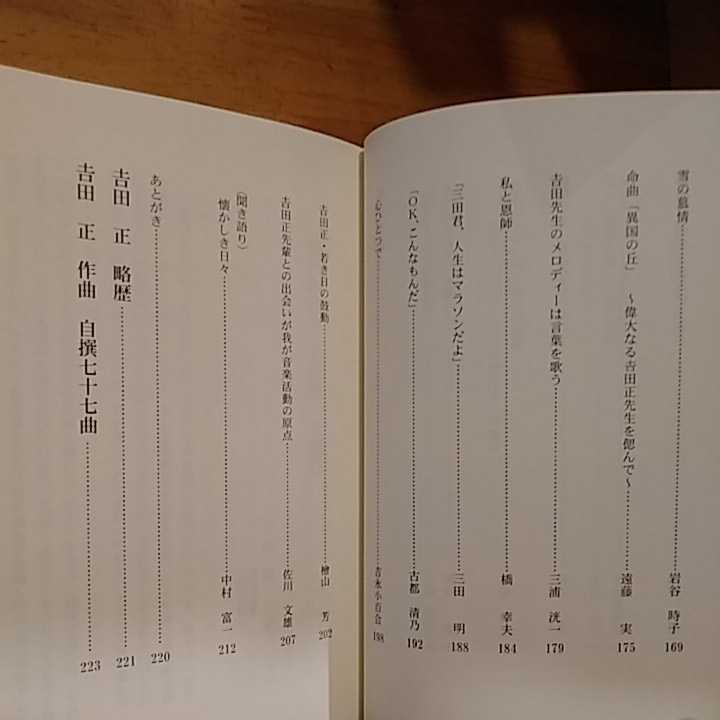 雪の慕情……岩谷 時子 169
命曲「異国の丘」 ～偉大なる吉田正先生を偲んで～……遠藤 実 175
吉田先生のメロディーは言葉を歌う……三浦 洸一 179
私と恩師……橋 幸夫 184
「三田君、人生はマラソンだよ」……三田 明 188
「OK、こんなもんだ」……古都 清乃 192
心ひとつで……吉永小百合 198
吉田正・若き日の鼓動……檜山 芳 202
吉田正先輩との出会いが我が音楽活動の原点……佐川 文雄 207
(聞き語り)
懐かしき日々……中村 富一 212
あとがき……220
吉田 正 略歴……221
吉田 正 作曲 自撰七十七曲……223